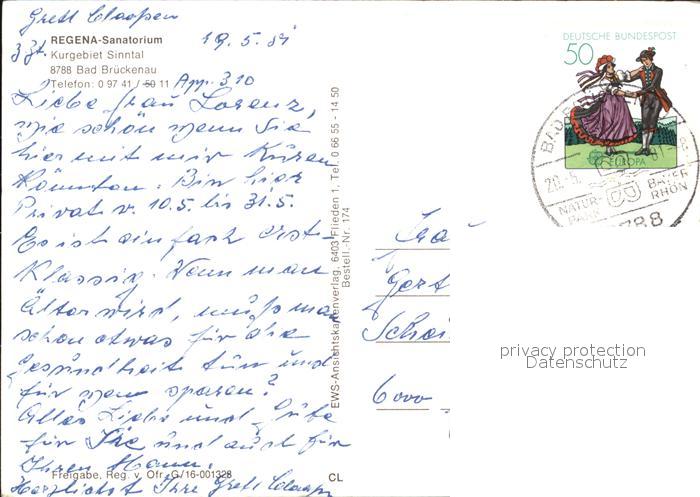 Gretl Claassen
z. Zt.
REGENA-Sanatorium
19.5.81
Kurgebiet Sinntal
8788 Bad Brückenau
Telefon: 0 97 41 / 50 11 App. 310
Liebe Frau Lorenz,
wie schön wenn Sie
hier mit mir Kuren
könnten. Bin hier
Privat v. 10.5. bis 31.5.
Es ist einfach erst-
klassig. Wenn man
älter wird, muß man
schon etwas für die
Gesundheit tun und
für wen sparen?
Alles Liebe und Gute
für Sie und auch für
Ihren Mann.
Freigabe, Reg. v. Ofr. G/16-001328
Herzlichst Ihre Gretl
CL
EWS-Ansichtskartenverlag, 6403 Flieden 1, Tel. 0 66 55 - 14 50
Bestell.-Nr. 174
DEUTSCHE BUNDESPOST
50
EUROPA
BAD
20.5.
NATUR-
PARK
BAYER
RHÖN
8788
Frau
Gert
6000
privacy protection
Datenschutz